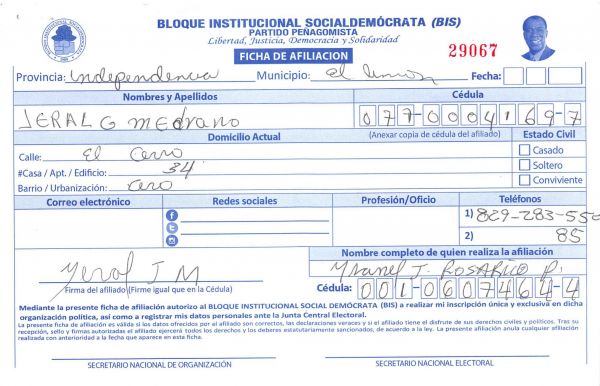 BLOQUE INSTITUCIONAL SOCIALDEMÓCRATA (BIS)
PARTIDO PEÑAGOMISTA
Libertad, Justicia, Democracia y Solidaridad
FICHA DE AFILIACION
29067
Provincia: Independencia Municipio: el limon Fecha:
Nombres y Apellidos Cédula
JERAL G medrano 077-0004169-7
Domicilio Actual (Anexar copia de cédula del afiliado) Estado Civil
Calle: El Cerro Casado
#Casa / Apt. / Edificio: 34 Soltero
Barrio / Urbanización: Cero Conviviente
Correo electrónico Redes sociales Profesión/Oficio Teléfonos
1) 829-283-550
2) 85
Nombre completo de quien realiza la afiliación
Yeral J M J. ROSARIO
Firma del afiliado (Firme igual que en la Cédula) Cédula: 001-0607464-4
Mediante la presente ficha de afiliación autorizo al BLOQUE INSTITUCIONAL SOCIAL DEMÓCRATA (BIS) a realizar mi inscripción única y exclusiva en dicha
organización política, así como a registrar mis datos personales ante la Junta Central Electoral.
La presente ficha de afiliación es válida si los datos ofrecidos por el afiliado son correctos, las declaraciones veraces y si el afiliado tiene el disfrute de sus derechos civiles y políticos. Tras su
recepción, sello y firmas autorizadas el afiliado ejercerá todos los derechos y los deberes estatutariamente sancionados, de acuerdo a la ley. La presente afiliación anula cualquier afiliación
realizada con anterioridad a la fecha que aparece en esta ficha.
SECRETARIO NACIONAL DE ORGANIZACIÓN SECRETARIO NACIONAL ELECTORAL